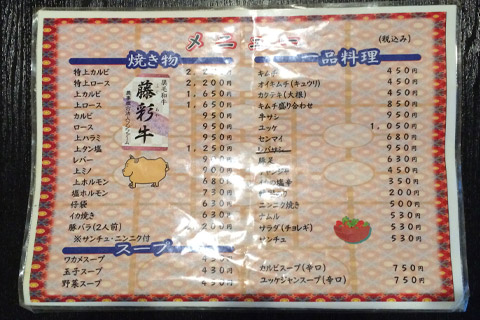 メニュー
(税込み)
焼き物
特上カルビ 2,200円
特上ロース 2,200円
上カルビ 1,650円
上ロース 1,650円
カルビ
ロース
上ハラミ
上タン塩 1,250円
レバー
上ミノ
上ホルモン 680円
塩ホルモン 730円
仔袋 630円
イカ焼き 630円
豚バラ(2人前)
※サンチュ・ニンニク付
黒毛和牛
藤彩牛
スープ
ワカメスープ 430円
玉子スープ 430円
野菜スープ 450円
一品料理
キムチ 450円
オイキムチ(キュウリ) 450円
カクテキ(大根) 450円
キムチ盛り合わせ 850円
牛サシ 950円
ユッケ 1,050円
センマイ 680円
レバサシ 950円
豚足 630円
450円
350円
200円
ニンニク焼き 500円
ナムル 530円
サラダ(チョレギ) 530円
サンチュ 530円
カルビスープ(辛口) 750円
ユッケジャンスープ(辛口) 750円